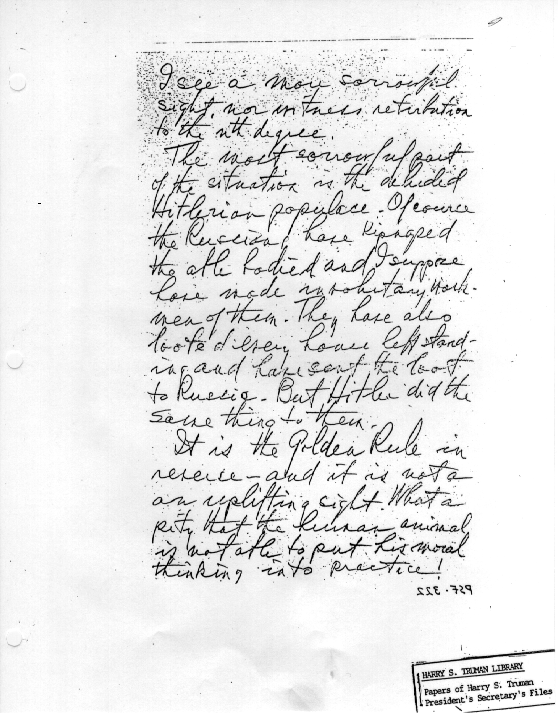 I see a more sorrowful
sight, nor witness retribution
to the nth degree.
The most sorrowful part
of the situation is the deluded
Hitlerian populace. Of course
the Russians have kidnaped
the able bodied and I suppose
have made involuntary work-
men of them. They have also
looted every house left stand-
ing and have sent the loot
to Russia. But Hitler did the
same thing to them.
It is the Golden Rule in
reverse - and it is not a
an uplifting sight. What a
pity that the human animal
is not able to put his moral
thinking into practice!
PSF. 322
HARRY S. TRUMAN LIBRARY
Papers of Harry S. Truman
President's Secretary's Files